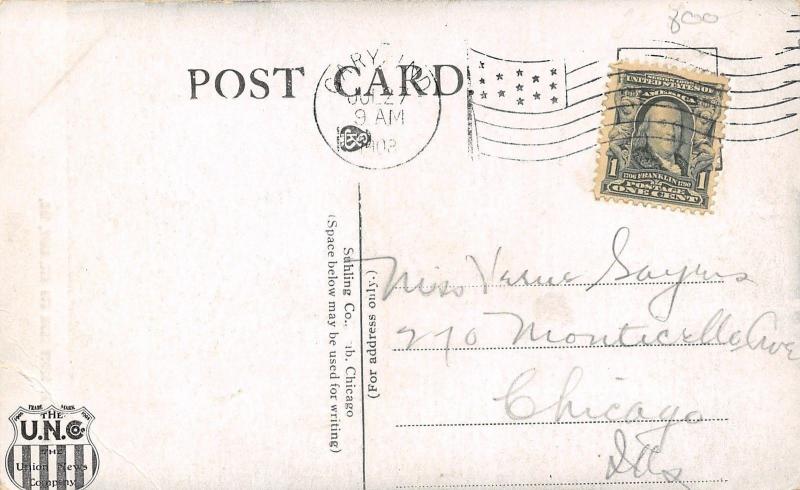 800
POST CARD
GARY, IND.
JUL 27
9 AM
1908
SERIES 1902
UNITED STATES OF
AMERICA
1 1706 FRANKLIN 1790 1
POSTAGE
ONE CENT
Suhling Co., Chicago
(Space below may be used for writing)
(For address only.)
Miss Verne Sayrus
270 Monticello Ave
Chicago
Ills
TRADE MARK
THE
U.N.Co.
THE
Union News
Company